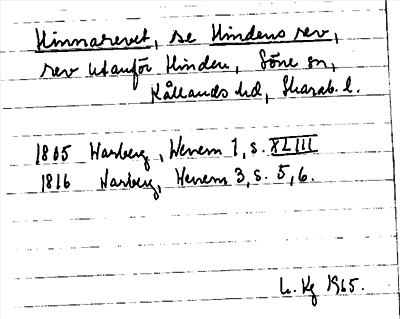 Hinnarevet, se Hindens rev,
rev utanför Hinden, Söne sn,
Kållands hd, Skarab. l.
1805 Warberg, Wenern 1, s. XLIII
1816 Warberg, Wenern 3, s. 5, 6.
L. Kg 1965.